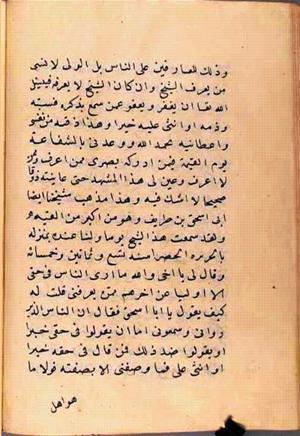 وذلك للعارفين على الناس بل الولى لا ينسى
من يعرف الشيخ وان كان الشيخ لا يعرفه فيسئل
الله تعا ان يغفر ويعفو عمن سمع بذكره فسبه
وذمه او اثنى عليه خيرا وهذا ذقته من نفسى
واعطانيه بحمد الله ووعدنى بالشفاعة
يوم القيمة فيمن ادركه بصرى ممن اعرف ومن
لا اعرف وعين لى هذا المشهد حتى عاينته ذوقا
صحيحا لا اشك فيه وهذا مذهب شيخنا ايضا
ابى اسحق بن طريف وهو من اكبر من لقيته
ولقد سمعت هذا الشيخ يوما ولنا عنده بمنزله
بالجزيره الخضرا سنه تسع وثمانين وخمسمائة
وقال لى يا اخى والله ما ارى الناس فى حقى
الا اوليا عن اخرهم ممن يعرفنى قلت له
كيف يقول يا ابا اسحق فقال ان الناس الذين
راونى وسمعونى اما ان يقولوا فى حقى خيرا
او يقولوا ضد ذلك فمن قال فى حقه خيرا
او اثنى على فما وصفنى الا بصفته فلولا ما
هو اهل